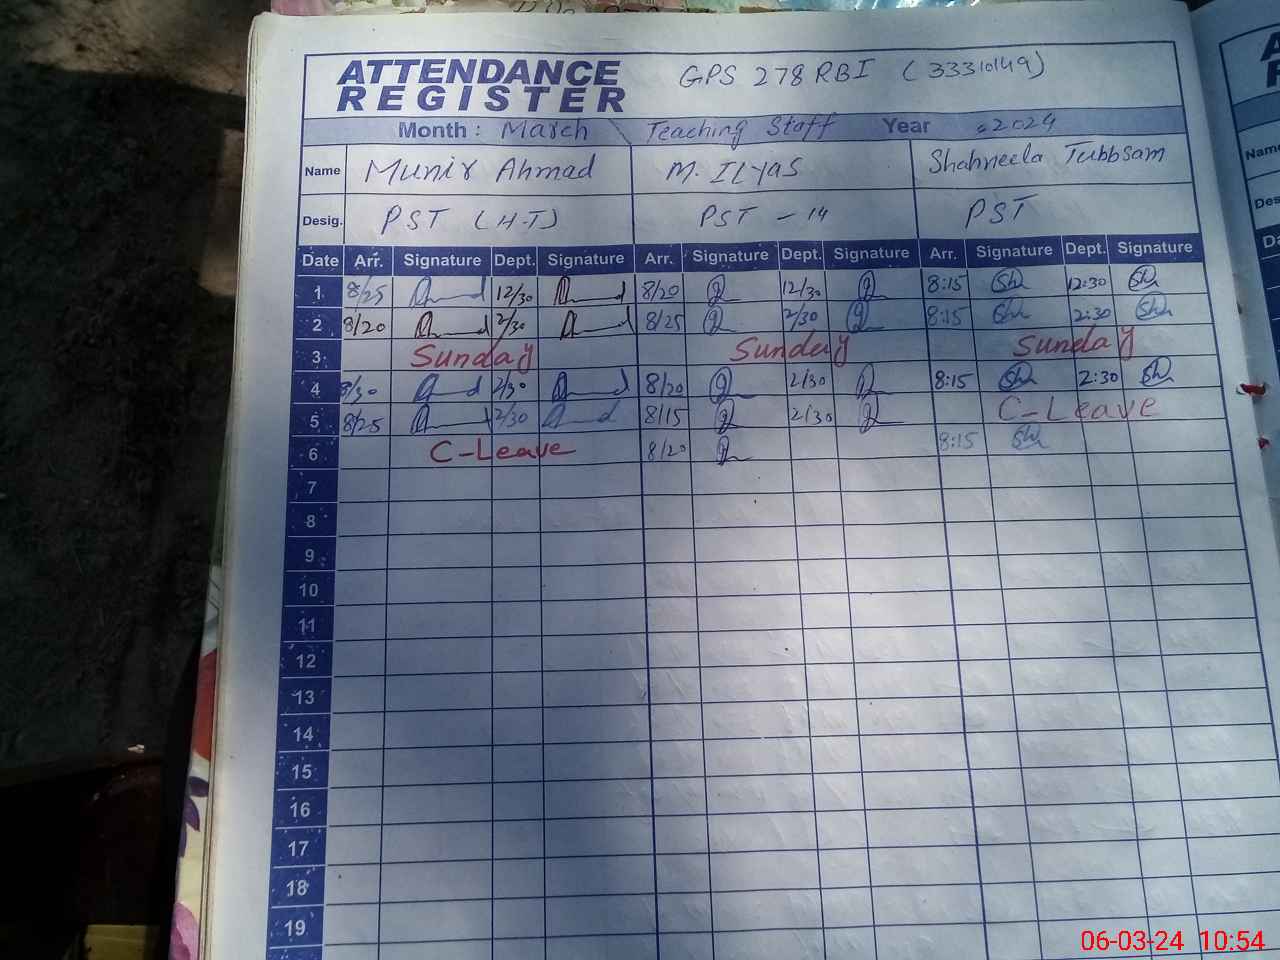 ATTENDANCE REGISTER GPS 278 RBI (33310149)
Month: March Teaching Staff Year 2024
Name Munir Ahmad M. ILyas Shahneela Tubbsam
Desig. PST (H.T) PST - 14 PST
Date Arr. Signature Dept. Signature Arr. Signature Dept. Signature Arr. Signature Dept. Signature
1 8/25 12/30 8/20 12/30 8:15 12:30
2 8/20 2/30 8/25 2/30 8:15 2:30
3 Sunday Sunday Sunday
4 8/30 2/30 8/20 2/30 8:15 2:30
5 8/25 2/30 8/15 2/30 C-Leave
6 C-Leave 8/20 8:15
7
8
9
10
11
12
13
14
15
16
17
18
19
06-03-24 10:54